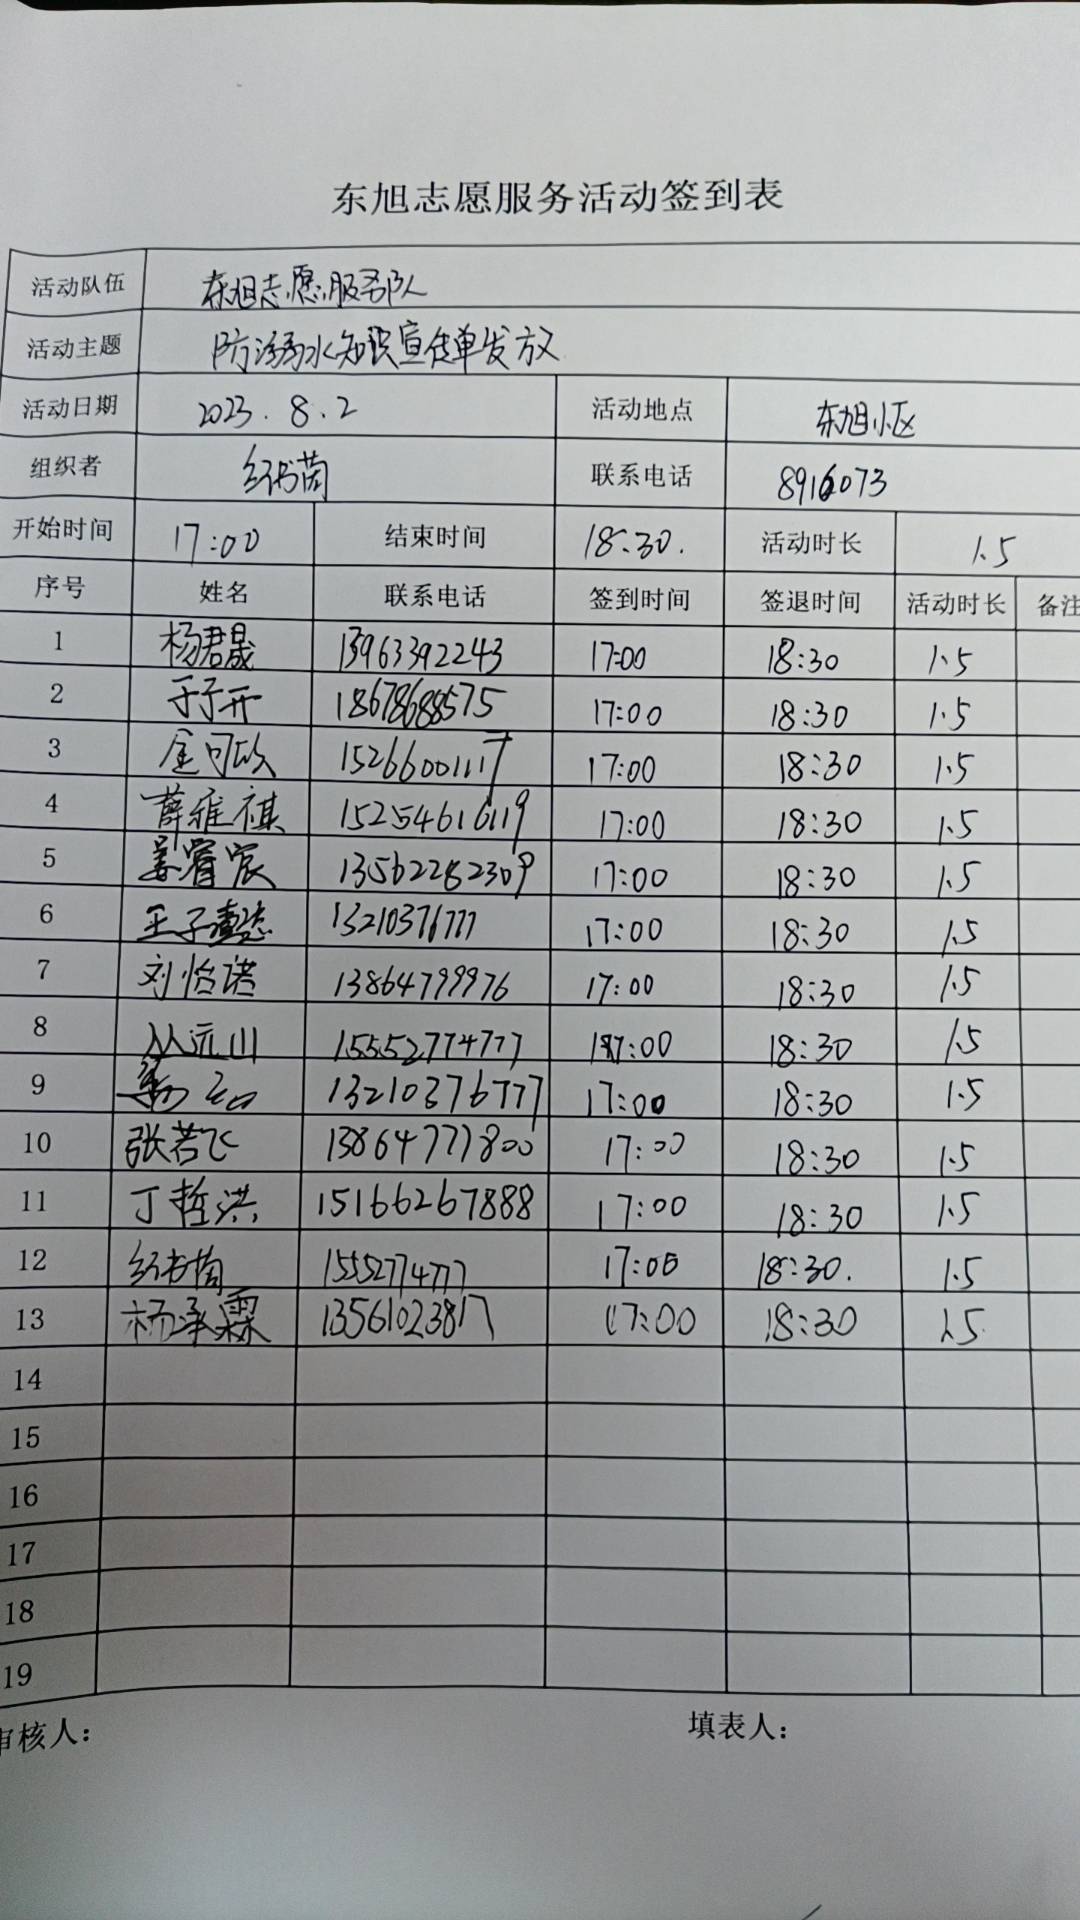 东旭志愿服务活动签到表
活动队伍 东旭志愿服务队
活动主题 防溺水知识宣传单发放
活动日期 2023.8.2 活动地点 东旭小区
组织者 联系电话 8916073
开始时间 17:00 结束时间 18:30. 活动时长 1.5
序号 姓名 联系电话 签到时间 签退时间 活动时长 备注
1 杨君晟 13963392243 17:00 18:30 1.5
2 于子开 18678688575 17:00 18:30 1.5
3 金可欣 15266001117 17:00 18:30 1.5
4 薛雅祺 15254616119 17:00 18:30 1.5
5 姜睿宸 13562282309 17:00 18:30 1.5
6 王子 13210376777 17:00 18:30 1.5
7 刘怡诺 13864799976 17:00 18:30 1.5
8 从远川 15552774777 17:00 18:30 1.5
9 13210376777 17:00 18:30 1.5
10 张若飞 13864777800 17:00 18:30 1.5
11 丁哲洪 15166267888 17:00 18:30 1.5
12 15552774777 17:00 18:30. 1.5
13 杨承霖 13561023817 17:00 18:30 1.5
14
15
16
17
18
19
审核人: 填表人: